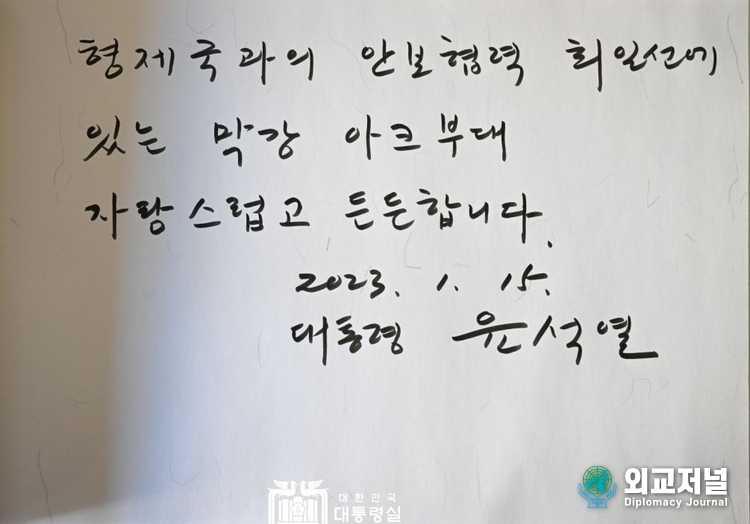 형제국과의 안보협력 최일선에
있는 막강 아크부대
자랑스럽고 든든합니다.
2023. 1. 15.
대통령 윤석열
대한민국
대통령실
외교저널
Diplomacy Journal